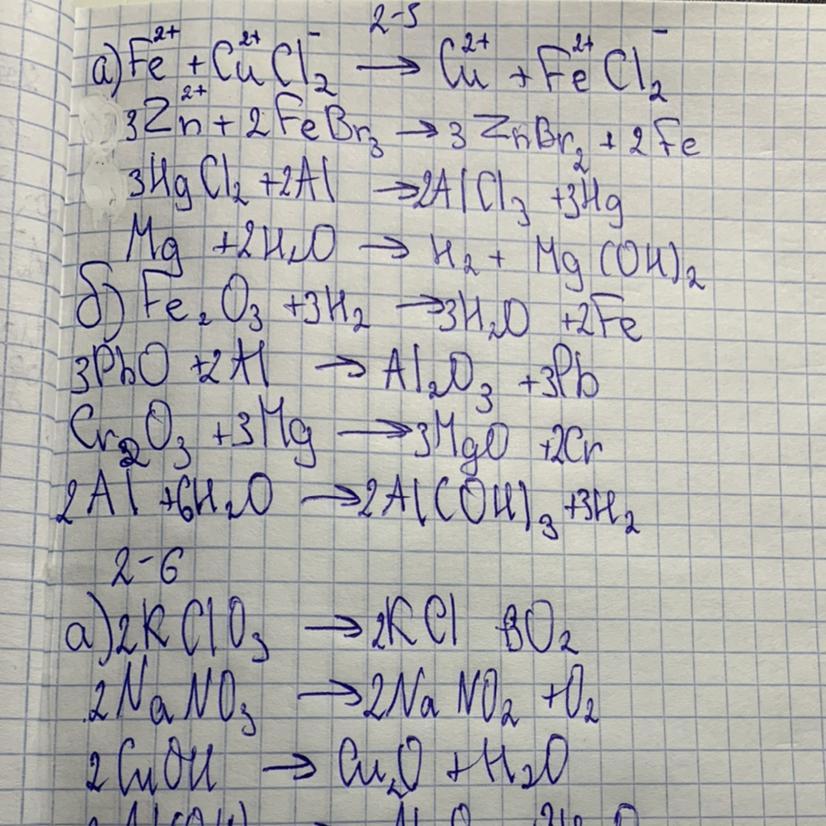 2-5
а) Fe²⁺ + Cu²⁺Cl₂⁻ → Cu²⁺ + Fe²⁺Cl₂⁻
3Zn²⁺ + 2FeBr₃ → 3ZnBr₂ + 2Fe
3HgCl₂ + 2Al → 2AlCl₃ + 3Hg
Mg + 2H₂O → H₂ + Mg(OH)₂
б) Fe₂O₃ + 3H₂ → 3H₂O + 2Fe
3PbO + 2Al → Al₂O₃ + 3Pb
Cr₂O₃ + 3Mg → 3MgO + 2Cr
2Al + 6H₂O → 2Al(OH)₃ + 3H₂
2-6
а) 2KClO₃ → 2KCl 3O₂
2NaNO₃ → 2NaNO₂ + O₂
2CuOH → Cu₂O + H₂O